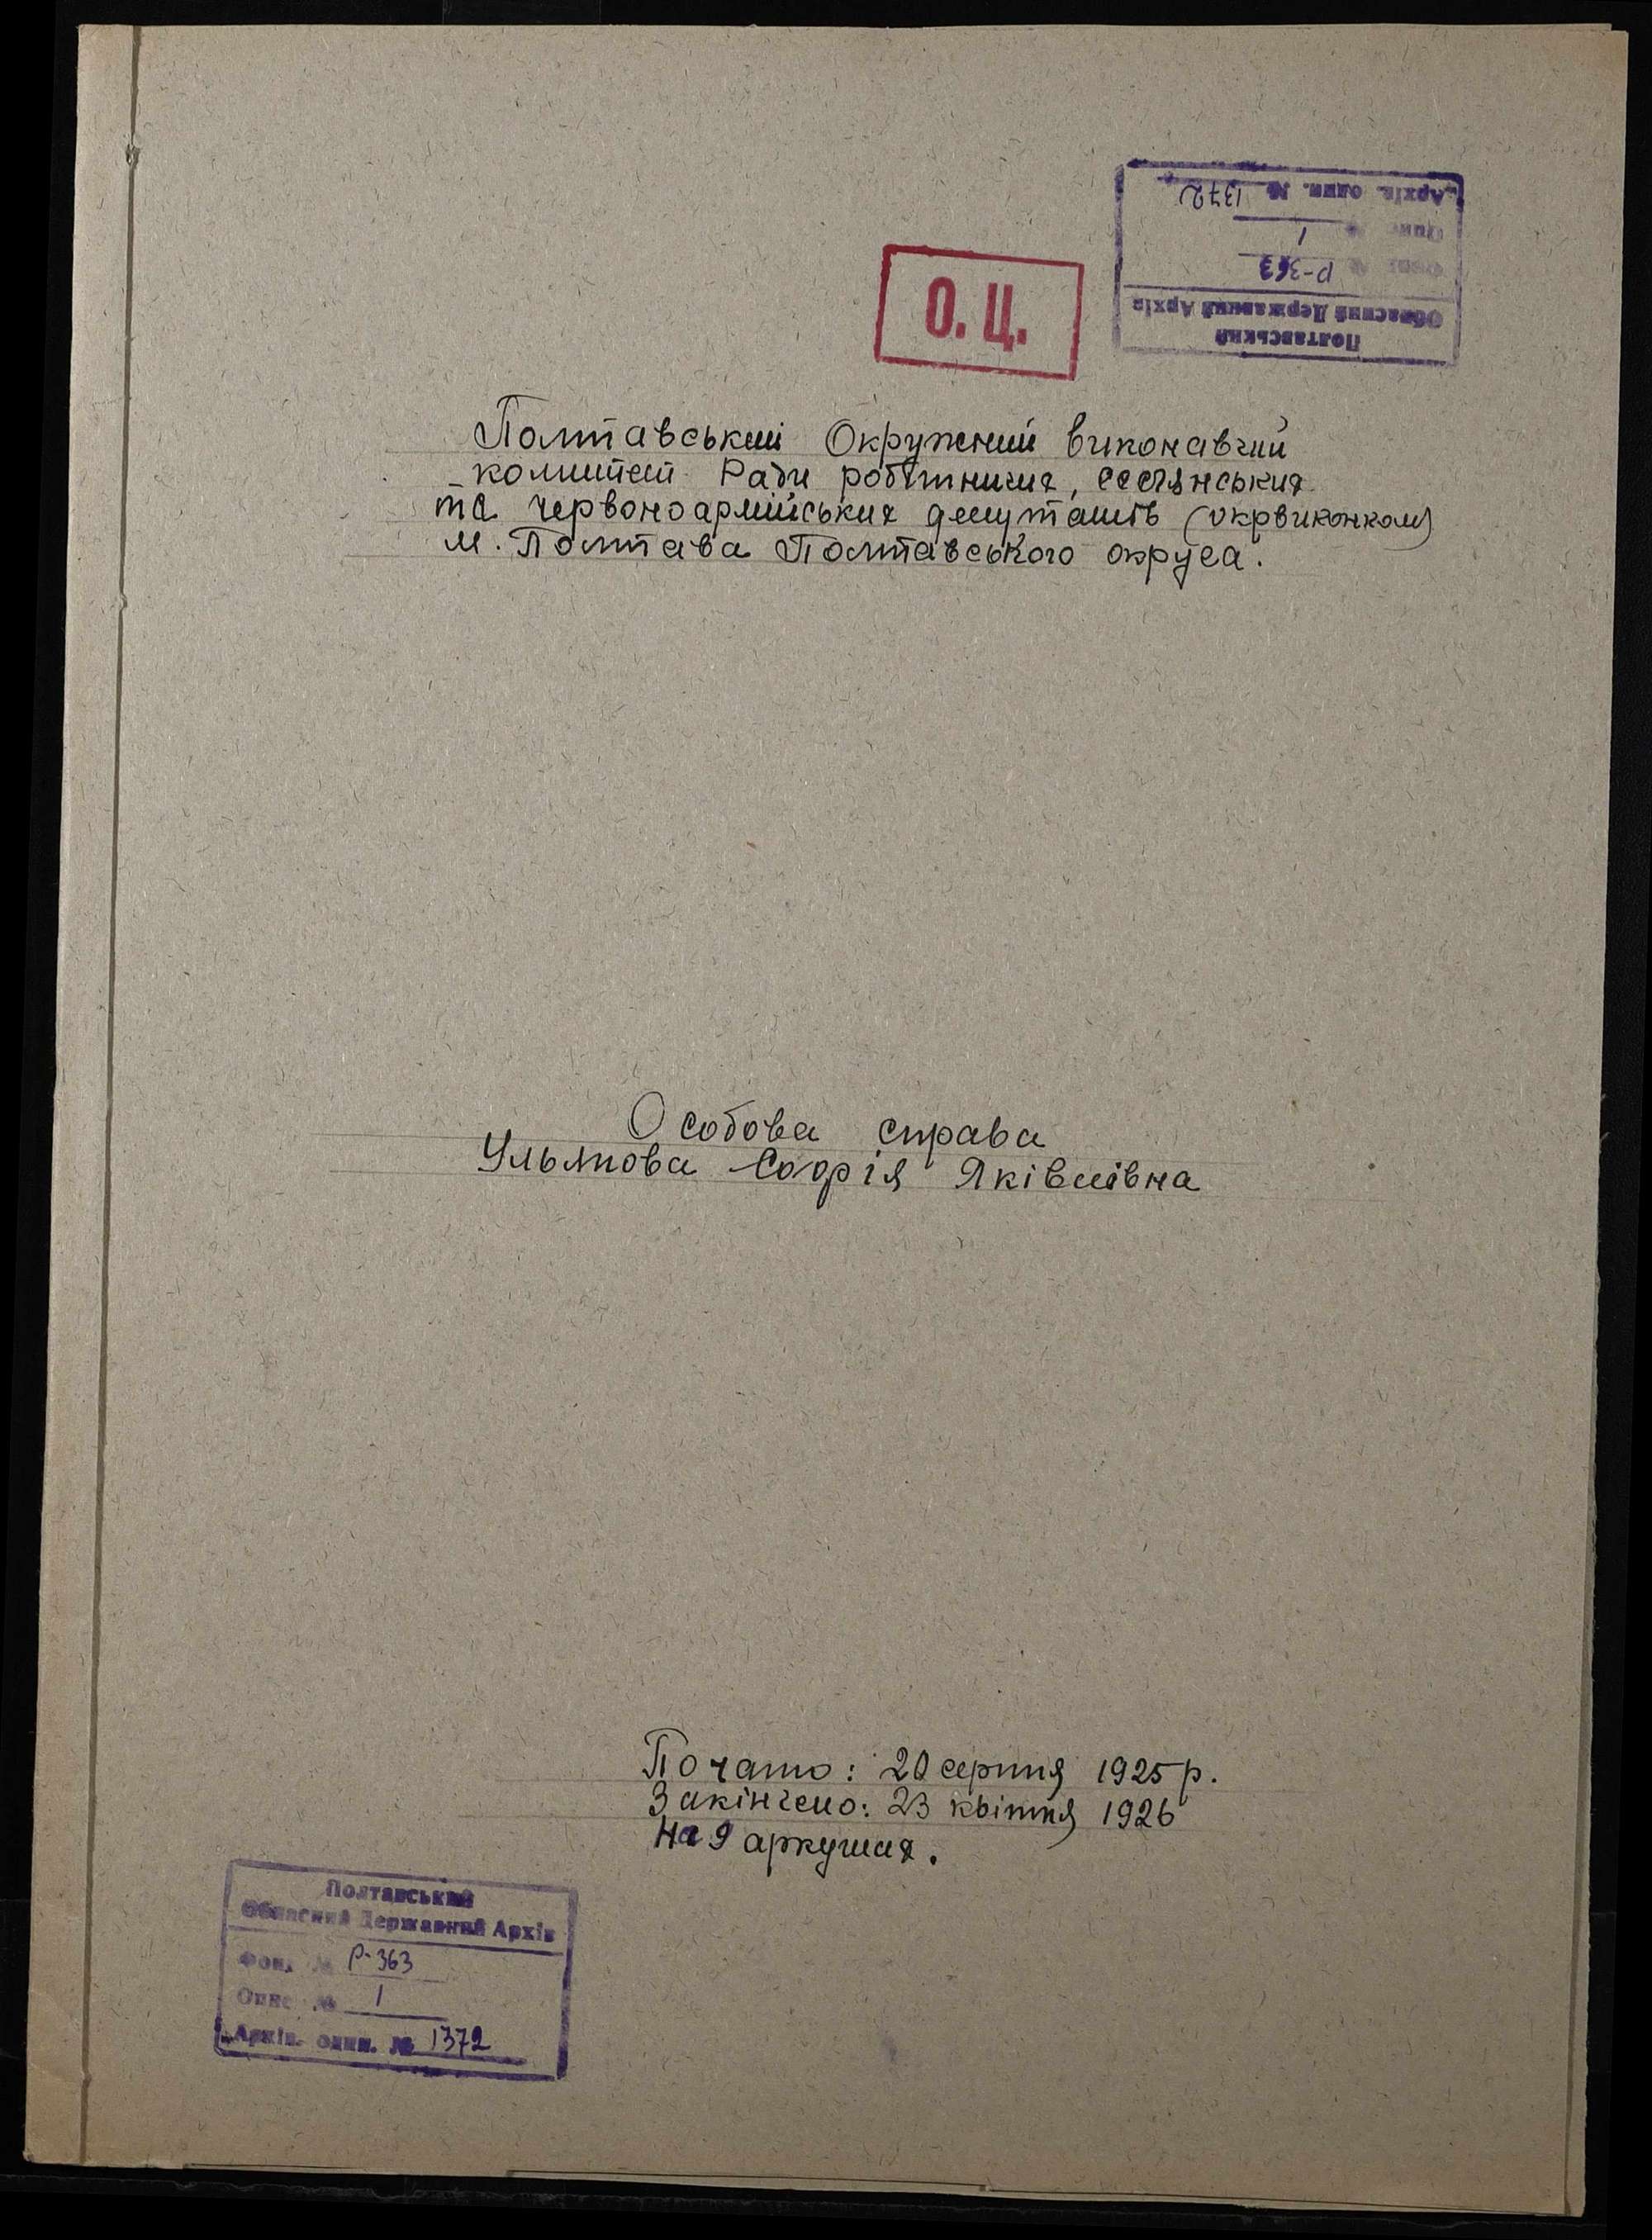 Полтавський
Обласний Державний Архів
Фонд № Р-363
Опис № 1
Архів. один. № 1372
О. Ц.
Полтавський Окружний виконавчий
комітет Ради робітничих, селянських
та червоноармійських депутатів (окрвиконком)
м. Полтава Полтавського округа.
Особова справа
Ульянова Софія Яківлівна
Почато: 20 серпня 1925 р.
Закінчено: 23 квітня 1926
На 9 аркушах.
Полтавський
Обласний Державний Архів
Фонд № Р-363
Опис № 1
Архів. один. № 1372